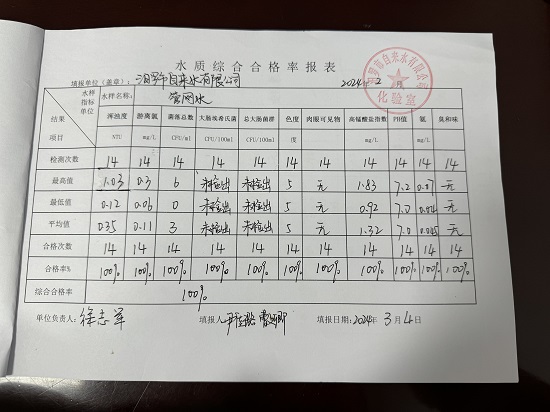 水质综合合格率报表
填报单位(盖章): 汨罗市自来水有限公司 2024年2月
汨罗市自来水有限公司
化验室
水样 水样名称: 管网水
指标
单位
结果 浑浊度 游离氯 菌落总数 大肠埃希氏菌 总大肠菌群 色度 肉眼可见物 高锰酸盐指数 PH值 氨 臭和味
项目 NTU mg/L CFU/ml CFU/100ml CFU/100ml 度 mg/L mg/L
检测次数 14 14 14 14 14 14 14 14 14 14 14
最高值 1.03 0.3 6 未检出 未检出 5 无 1.83 7.2 0.07 无
最低值 0.12 0.06 0 未检出 未检出 5 无 0.92 7.0 0.04 无
平均值 0.35 0.11 3 未检出 未检出 5 无 1.32 7.0 0.045 无
合格次数 14 14 14 14 14 14 14 14 14 14 14
合格率% 100% 100% 100% 100% 100% 100% 100% 100% 100% 100% 100%
综合合格率 100%
单位负责人: 徐志军 填报人: 填报日期: 2024年3月4日